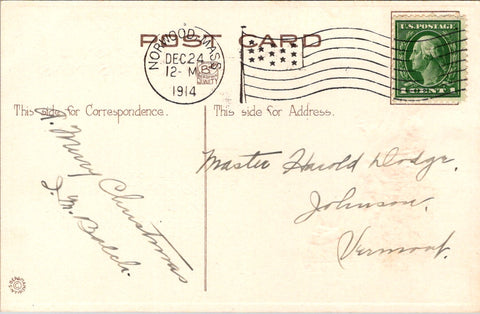 POST CARD
NORWOOD, MASS.
DEC 24
12-M
1914
U.S. POSTAGE
1 CENT 1
This side for Correspondence.
This side for Address.
A Merry Christmas
J. M. Balch.
Master Harold Dodge,
Johnson,
Vermont.